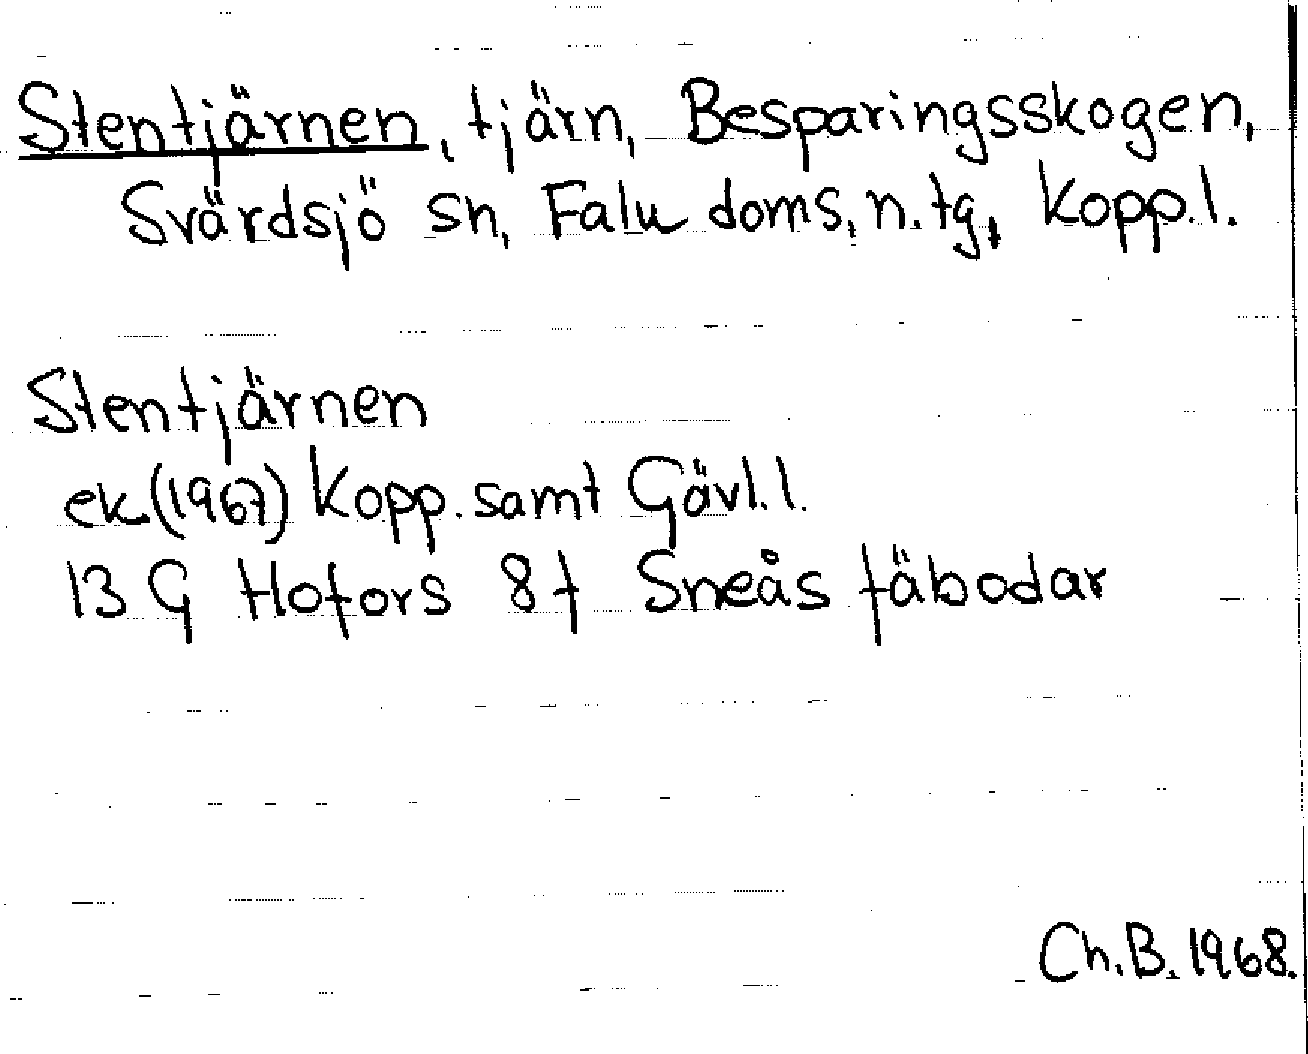 Stentjärnen, tjärn, Besparingsskogen,
Svärdsjö sn, Falu doms. n. tg, Kopp. l.
Stentjärnen
ek (1967) Kopp. samt Gävl. l.
13 G Hofors 8f Sneås fäbodar
Ch. B. 1968.